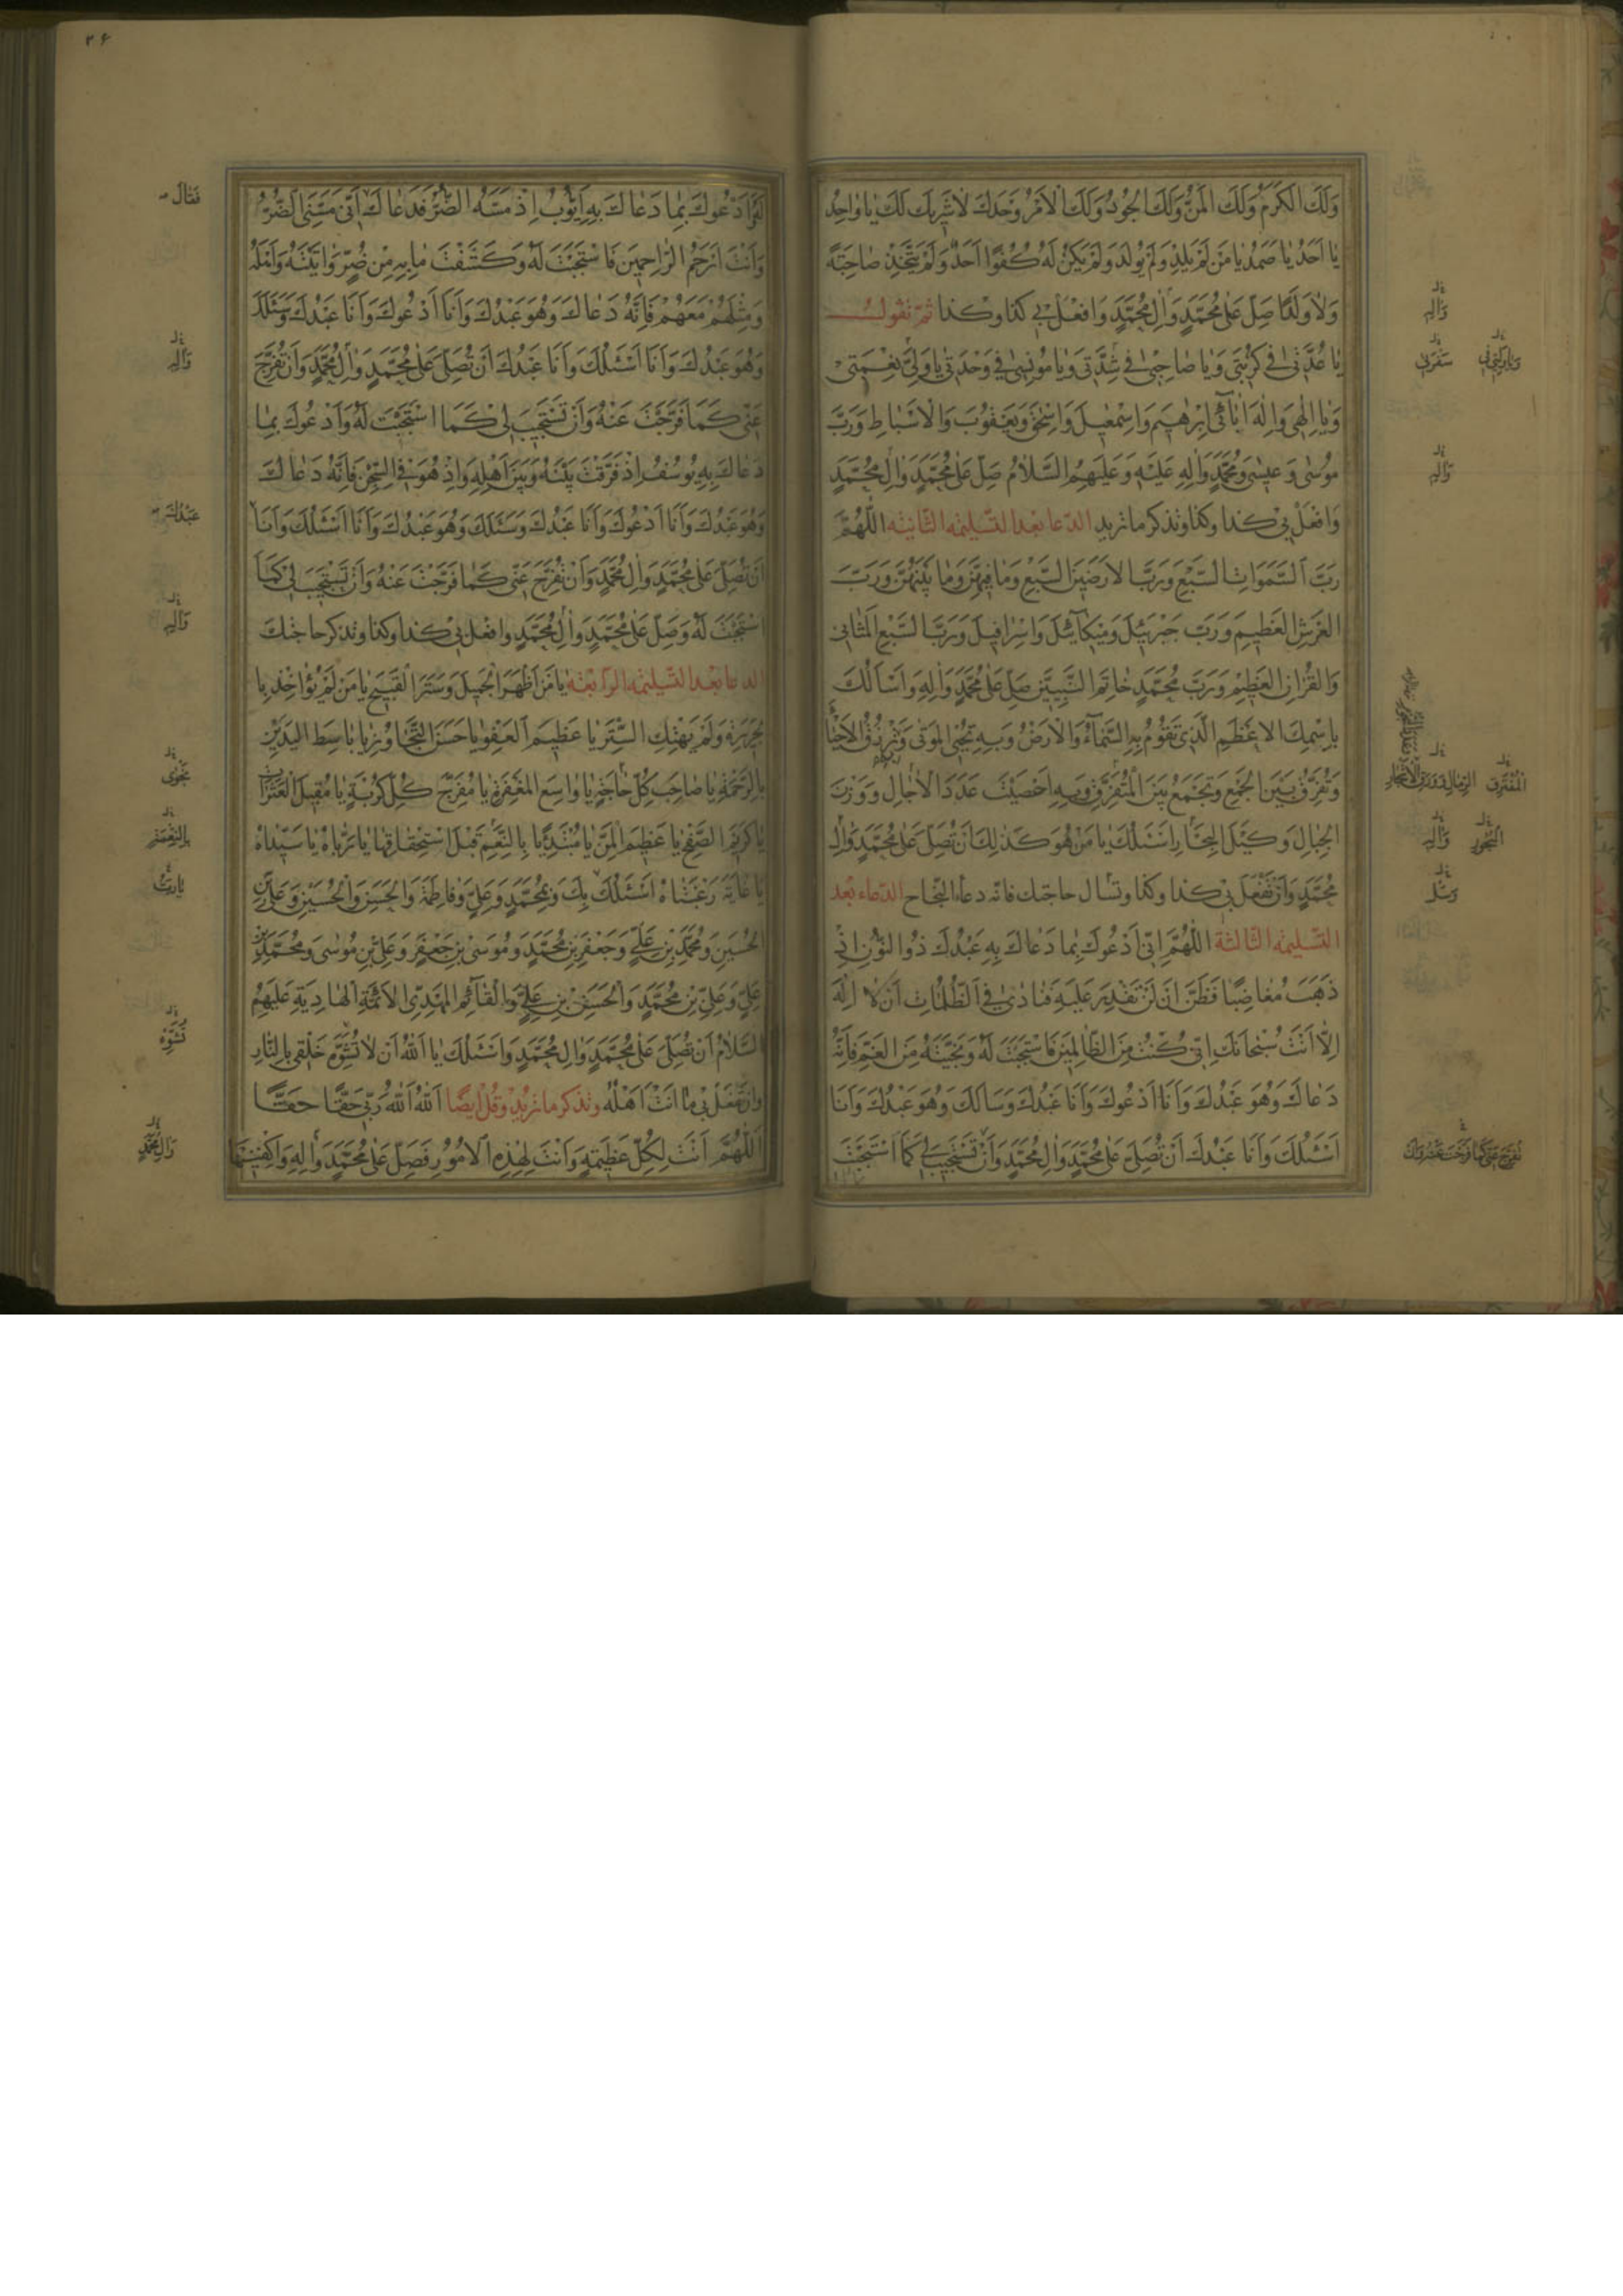 وَلَكَ الْكَرَمُ وَلَكَ الْمَنُّ وَلَكَ الْجُودُ وَلَكَ الْاَمْرُ وَحْدَكَ لَا شَرِيكَ لَكَ يَا وَاحِدُ
يَا اَحَدُ يَا صَمَدُ يَا مَنْ لَمْ يَلِدْ وَلَمْ يُولَدْ وَلَمْ يَكُنْ لَهُ كُفُوًا اَحَدٌ وَلَمْ يَتَّخِذْ صَاحِبَةً
وَلَا وَلَدًا صَلِّ عَلٰى مُحَمَّدٍ وَاٰلِ مُحَمَّدٍ وَافْعَلْ بِي كَذَا وَكَذَا ثُمَّ تَقُولُ
يَا عُدَّتِي فِي كُرْبَتِي وَيَا صَاحِبِي فِي شِدَّتِي وَيَا مُونِسِي فِي وَحْدَتِي يَا وَلِيَّ نِعْمَتِي
وَيَا اِلٰهِي وَاِلٰهَ اٰبَائِي اِبْرٰهِيمَ وَاِسْمٰعِيلَ وَاِسْحٰقَ وَيَعْقُوبَ وَالْاَسْبَاطِ وَرَبَّ
مُوسٰى وَعِيسٰى وَمُحَمَّدٍ وَاٰلِهِ عَلَيْهِ وَعَلَيْهِمُ السَّلَامُ صَلِّ عَلٰى مُحَمَّدٍ وَاٰلِ مُحَمَّدٍ
وَافْعَلْ بِي كَذَا وَكَذَا وتذكر ما تريد الدّعا بعد التّسليمه الثّانيه اللّٰهُمَّ
رَبَّ السَّمٰوَاتِ السَّبْعِ وَرَبَّ الْاَرَضِينَ السَّبْعِ وَمَا فِيهِنَّ وَمَا بَيْنَهُنَّ وَرَبَّ
الْعَرْشِ الْعَظِيمِ وَرَبَّ جَبْرَئِيلَ وَمِيكَائِيلَ وَاِسْرَافِيلَ وَرَبَّ السَّبْعِ الْمَثَانِي
وَالْقُرْاٰنِ الْعَظِيمِ وَرَبَّ مُحَمَّدٍ خَاتَمِ النَّبِيِّينَ صَلِّ عَلٰى مُحَمَّدٍ وَاٰلِهِ وَاَسْأَلُكَ
بِاسْمِكَ الْاَعْظَمِ الَّذِي تَقُومُ بِهِ السَّمَاءُ وَالْاَرْضُ وَبِهِ تُحْيِي الْمَوْتٰى وَتَرْزُقُ الْاَحْيَاءَ
وَتُفَرِّقُ بَيْنَ الْجَمْعِ وَتَجْمَعُ بَيْنَ الْمُتَفَرِّقِ وَبِهِ اَحْصَيْتَ عَدَدَ الْاٰجَالِ وَوَزْنَ
الْجِبَالِ وَكَيْلَ الْبِحَارِ اَسْئَلُكَ يَا مَنْ هُوَ كَذٰلِكَ اَنْ تُصَلِّيَ عَلٰى مُحَمَّدٍ وَاٰلِ
مُحَمَّدٍ وَاَنْ تَفْعَلَ بِي كذا وكذا وتسأل حاجتك فانه دعاء النّجاح الدّعاء بعد
التّسليمه الثّالثة اللّٰهُمَّ اِنِّي اَدْعُوكَ بِمَا دَعَاكَ بِهِ عَبْدُكَ ذُوالنُّونِ اِذْ
ذَهَبَ مُغَاضِبًا فَظَنَّ اَنْ لَنْ نَقْدِرَ عَلَيْهِ فَنَادٰى فِي الظُّلُمَاتِ اَنْ لَا اِلٰهَ
اِلَّا اَنْتَ سُبْحَانَكَ اِنِّي كُنْتُ مِنَ الظَّالِمِينَ فَاسْتَجَبْتَ لَهُ وَنَجَّيْتَهُ مِنَ الْغَمِّ فَاِنَّهُ
دَعَاكَ وَهُوَ عَبْدُكَ وَاَنَا اَدْعُوكَ وَاَنَا عَبْدُكَ وَسَاَلَكَ وَهُوَ عَبْدُكَ وَاَنَا
اَسْئَلُكَ وَاَنَا عَبْدُكَ اَنْ تُصَلِّيَ عَلٰى مُحَمَّدٍ وَاٰلِ مُحَمَّدٍ وَاَنْ تَسْتَجِيبَ لِي كَمَا اسْتَجَبْتَ
وَاٰلِهِ
سَفَرِي
وَاٰلِهِ
الْمُفْتَرِقِ
الْبُحُورِ
وَاٰلِهِ
وَسَلْ
۲۶
لَهُ وَاَدْعُوكَ بِمَا دَعَاكَ بِهِ اَيُّوبُ اِذْ مَسَّهُ الضُّرُّ فَدَعَاكَ اَنِّي مَسَّنِيَ الضُّرُّ
وَاَنْتَ اَرْحَمُ الرَّاحِمِينَ فَاسْتَجَبْتَ لَهُ وَكَشَفْتَ مَا بِهِ مِنْ ضُرٍّ وَاٰتَيْتَهُ وَاَهْلَهُ
وَمِثْلَهُمْ مَعَهُمْ فَاِنَّهُ دَعَاكَ وَهُوَ عَبْدُكَ وَاَنَا اَدْعُوكَ وَاَنَا عَبْدُكَ وَسَئَلَكَ
وَهُوَ عَبْدُكَ وَاَنَا اَسْئَلُكَ وَاَنَا عَبْدُكَ اَنْ تُصَلِّيَ عَلٰى مُحَمَّدٍ وَاٰلِ مُحَمَّدٍ وَاَنْ تُفَرِّجَ
عَنِّي كَمَا فَرَّجْتَ عَنْهُ وَاَنْ تَسْتَجِيبَ لِي كَمَا اسْتَجَبْتَ لَهُ وَاَدْعُوكَ بِمَا
دَعَاكَ بِهِ يُوسُفُ اِذْ فَرَّقْتَ بَيْنَهُ وَبَيْنَ اَهْلِهِ وَاِذْ هُوَ فِي السِّجْنِ فَاِنَّهُ دَعَاكَ
وَهُوَ عَبْدُكَ وَاَنَا اَدْعُوكَ وَاَنَا عَبْدُكَ وَسَئَلَكَ وَهُوَ عَبْدُكَ وَاَنَا اَسْئَلُكَ وَاَنَا
اَنْ تُصَلِّيَ عَلٰى مُحَمَّدٍ وَاٰلِ مُحَمَّدٍ وَاَنْ تُفَرِّجَ عَنِّي كَمَا فَرَّجْتَ عَنْهُ وَاَنْ تَسْتَجِيبَ لِي كَمَا
اسْتَجَبْتَ لَهُ وَصَلِّ عَلٰى مُحَمَّدٍ وَاٰلِ مُحَمَّدٍ وافعل بي كذا وكذا وتذكر حاجتك
الدعا بعد التّسليمه الرّابعه يَا مَنْ اَظْهَرَ الْجَمِيلَ وَسَتَرَ الْقَبِيحَ يَا مَنْ لَمْ يُؤَاخِذْ بِا
لْجَرِيرَةِ وَلَمْ يَهْتِكِ السِّتْرَ يَا عَظِيمَ الْعَفْوِ يَا حَسَنَ التَّجَاوُزِ يَا بَاسِطَ الْيَدَيْنِ
بِالرَّحْمَةِ يَا صَاحِبَ كُلِّ حَاجَةٍ يَا وَاسِعَ الْمَغْفِرَةِ يَا مُفَرِّجَ كُلِّ كُرْبَةٍ يَا مُقِيلَ الْعَثَرَاتِ
يَا كَرِيمَ الصَّفْحِ يَا عَظِيمَ الْمَنِّ يَا مُبْتَدِئًا بِالنِّعَمِ قَبْلَ اسْتِحْقَاقِهَا يَا رَبَّاهُ يَا سَيِّدَاهُ
يَا غَايَةَ رَغْبَتَاهُ اَسْئَلُكَ بِكَ وَبِمُحَمَّدٍ وَعَلِيٍّ وَفَاطِمَةَ وَالْحَسَنِ وَالْحُسَيْنِ وَعَلِيِّ بْنِ
الْحُسَيْنِ وَمُحَمَّدِ بْنِ عَلِيٍّ وَجَعْفَرِ بْنِ مُحَمَّدٍ وَمُوسَى بْنِ جَعْفَرٍ وَعَلِيِّ بْنِ مُوسٰى وَمُحَمَّدِ بْنِ
عَلِيٍّ وَعَلِيِّ بْنِ مُحَمَّدٍ وَالْحَسَنِ بْنِ عَلِيٍّ وَالْقَائِمِ الْمَهْدِيِّ الْاَئِمَّةِ الْهَادِيَةِ عَلَيْهِمُ
السَّلَامُ اَنْ تُصَلِّيَ عَلٰى مُحَمَّدٍ وَاٰلِ مُحَمَّدٍ وَاَسْئَلُكَ يَا اَللّٰهُ اَنْ لَا تُشَوِّهَ خَلْقِي بِالنَّارِ
وَاَنْ تَفْعَلَ بِي مَا اَنْتَ اَهْلُهُ وتذكر ما تريد وَقُلْ اَيْضًا اَللّٰهُ اَللّٰهُ رَبِّي حَقًّا حَقًّا
اَللّٰهُمَّ اَنْتَ لِكُلِّ عَظِيمَةٍ وَاَنْتَ لِهٰذِهِ الْاُمُورِ فَصَلِّ عَلٰى مُحَمَّدٍ وَاٰلِهِ وَاكْفِنِيهَا
فَقَالَ
وَاٰلِهِ
عَبْدُكَ
وَاٰلِهِ
نَجْوٰى
بِالنِّعْمَةِ
يَا رَبِّ
تُشَوِّهْ
وَاٰلِ مُحَمَّدٍ